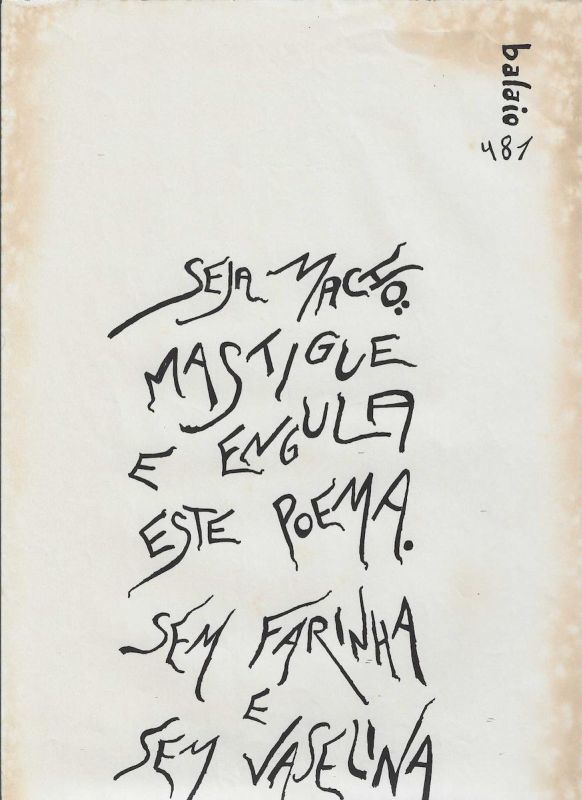 balaio
481
SEJA MACHO:
MASTIGUE
E ENGULA
ESTE POEMA.
SEM FARINHA
E
SEM VASELINA